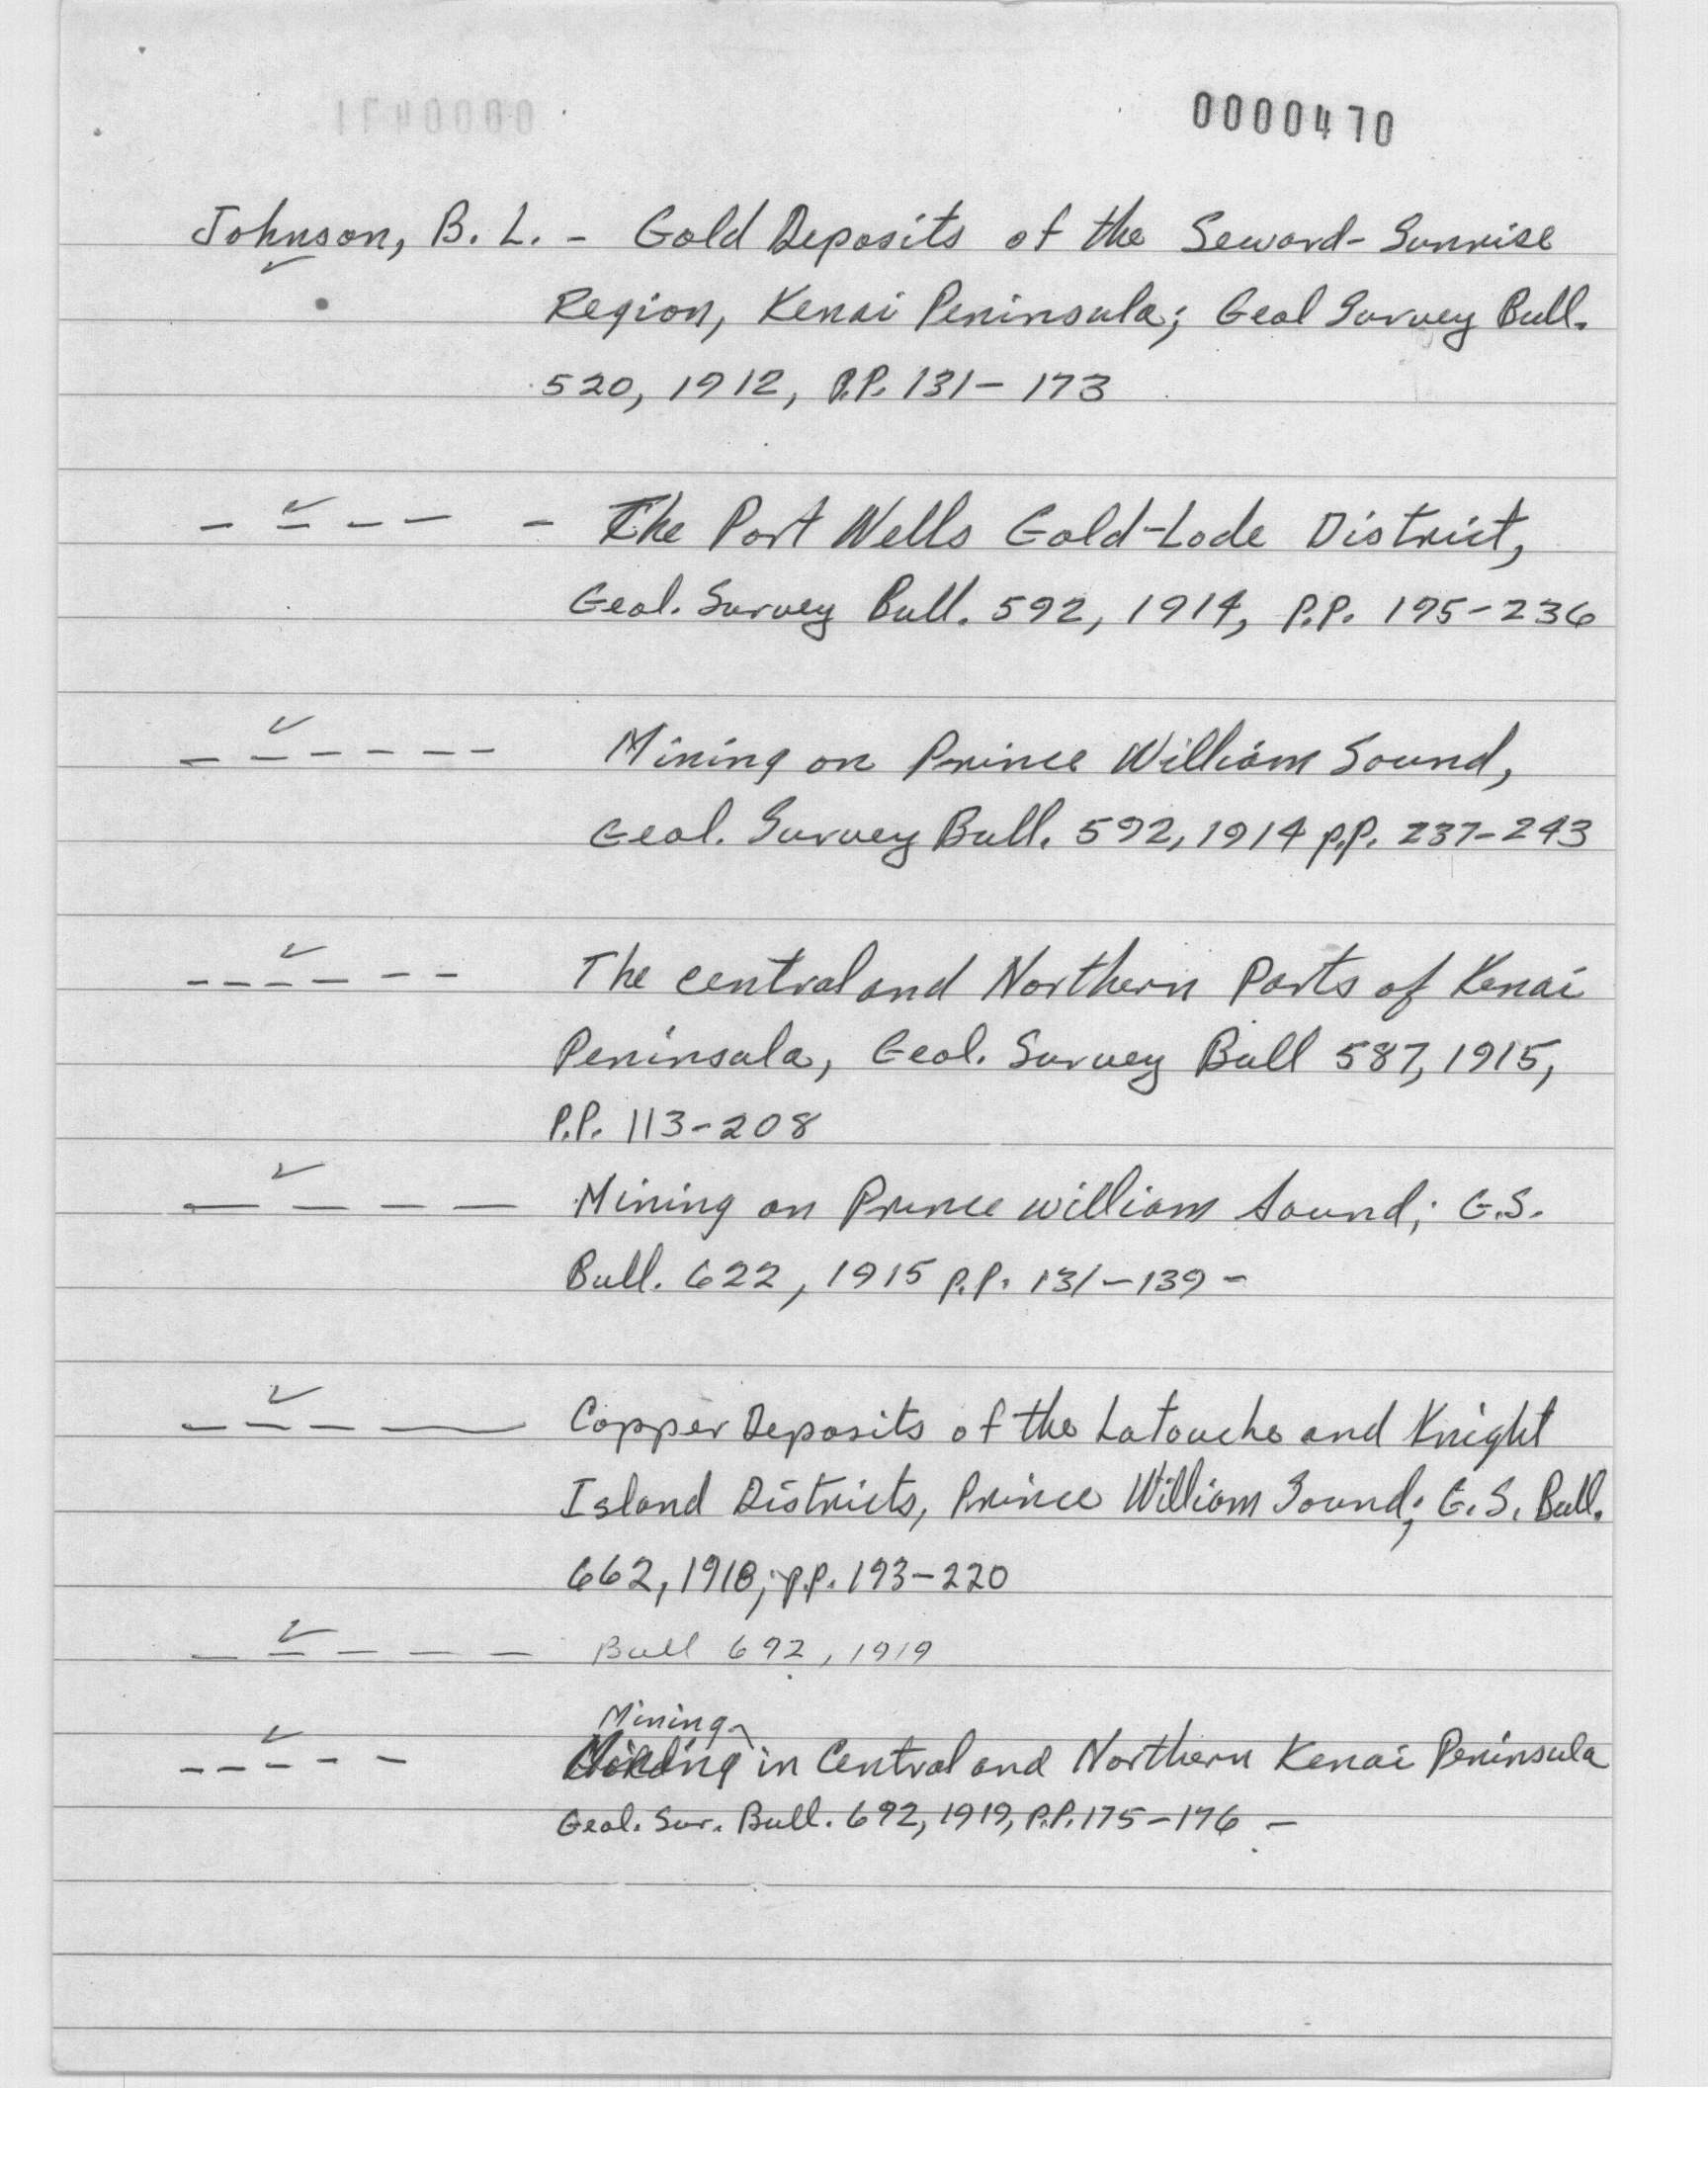 0000470
Johnson, B. L. - Gold Deposits of the Seward-Sunrise
Region, Kenai Peninsula; Geol Survey Bull.
520, 1912, P.P. 131-173
- - - - - The Port Wells Gold-Lode District,
Geol. Survey Bull. 592, 1914, P.P. 195-236
- - - - - - Mining on Prince William Sound,
Geol. Survey Bull. 592, 1914 p.p. 237-243
- - - - - - The central and Northern Parts of Kenai
Peninsula, Geol. Survey Bull 587, 1915,
P.P. 113-208
- - - - Mining on Prince william Sound; G.S.
Bull. 622, 1915 p.p. 131-139 -
- - - - Copper Deposits of the Latouche and Knight
Island Districts, Prince William Sound; G. S. Bull.
662, 1918; p.p. 193-220
- - - - - Bull 692, 1919
Mining
in Central and Northern Kenai Peninsula
Geol. Sur. Bull. 692, 1919, P.P. 175-176 -